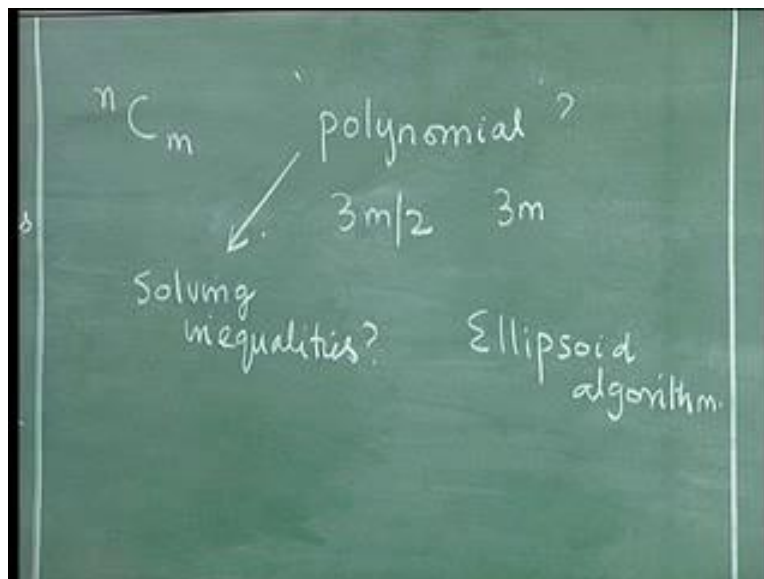 ⁿCₘ 'polynomial' ?
3m/2 3m
Solving
inequalities?
Ellipsoid
algorithm.